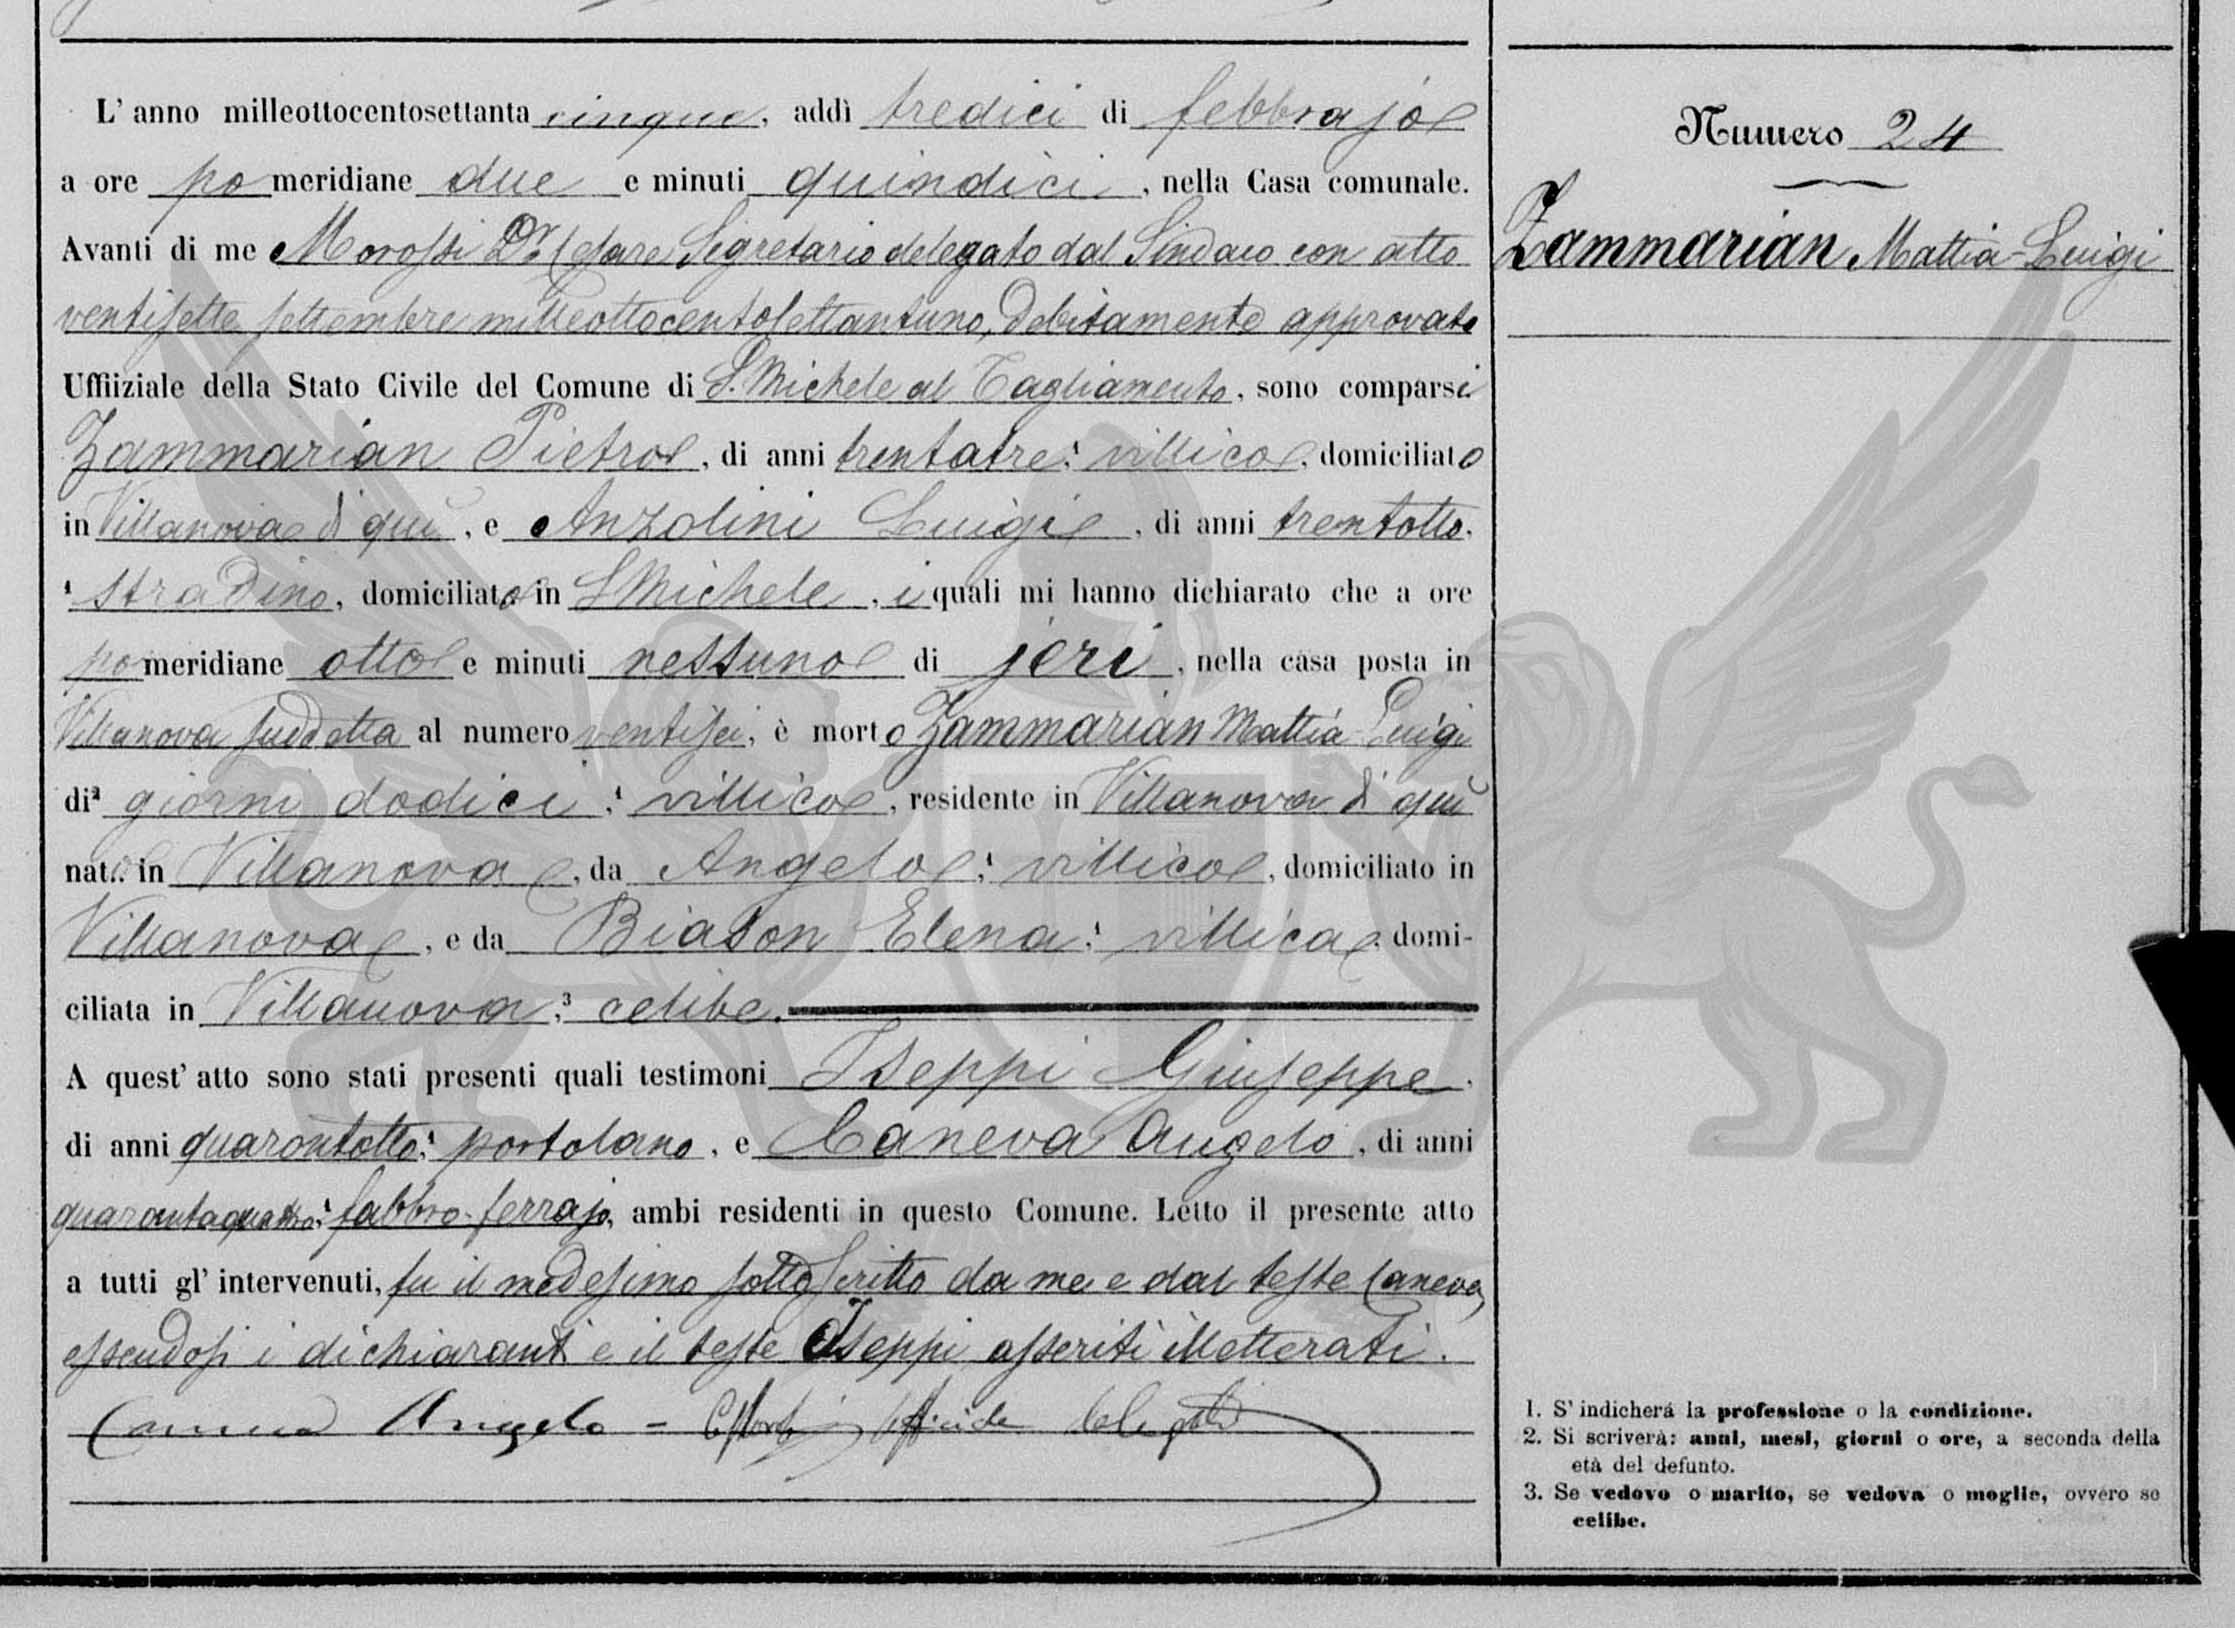 L' anno milleottocentosettanta cinque, addì tredici di febbrajo
a ore po meridiane due e minuti quindici, nella Casa comunale.
Avanti di me Morossi Dr Cesare Segretario delegato dal Sindaco con atto
ventisette settembre milleottocentosettantuno, debitamente approvato
Uffiiziale della Stato Civile del Comune di S. Michele al Tagliamento, sono comparsi
Zammarian Pietro, di anni trentatre;¹ villico, domiciliato
in Villanova di quì, e Anzolini Luigi, di anni trentotto,
¹ stradino, domiciliato in S Michele, i quali mi hanno dichiarato che a ore
pomeridiane otto e minuti nessuno di jeri, nella casa posta in
Villanova suddetta al numero ventisei, è morto Zammarian Mattia-Luigi
di² giorni dodici;¹ villico, residente in Villanova di quì
nato in Villanova, da Angelo;¹ villico, domiciliato in
Villanova, e da Biason Elena;¹ villica, domi-
ciliata in Villanova;³ celibe.
A quest' atto sono stati presenti quali testimoni Iseppi Giuseppe,
di anni quarantotto;¹ portolano, e Caneva Angelo, di anni
quarantaquattro;¹ fabbro-ferrajo, ambi residenti in questo Comune. Letto il presente atto
a tutti gl' intervenuti, fu il medesimo sottoscritto da me e dal teste Caneva,
essendosi i dichiaranti e il teste Iseppi asseriti illetterati.
Caneva Angelo = CMorossi Officiale delegato
Numero 24
Zammarian Mattia-Luigi
1. S' indicherà la professione o la condizione.
2. Si scriverà: anni, mesi, giorni o ore, a seconda della
età del defunto.
3. Se vedovo o marito, se vedova o moglie, ovvero se
celibe.